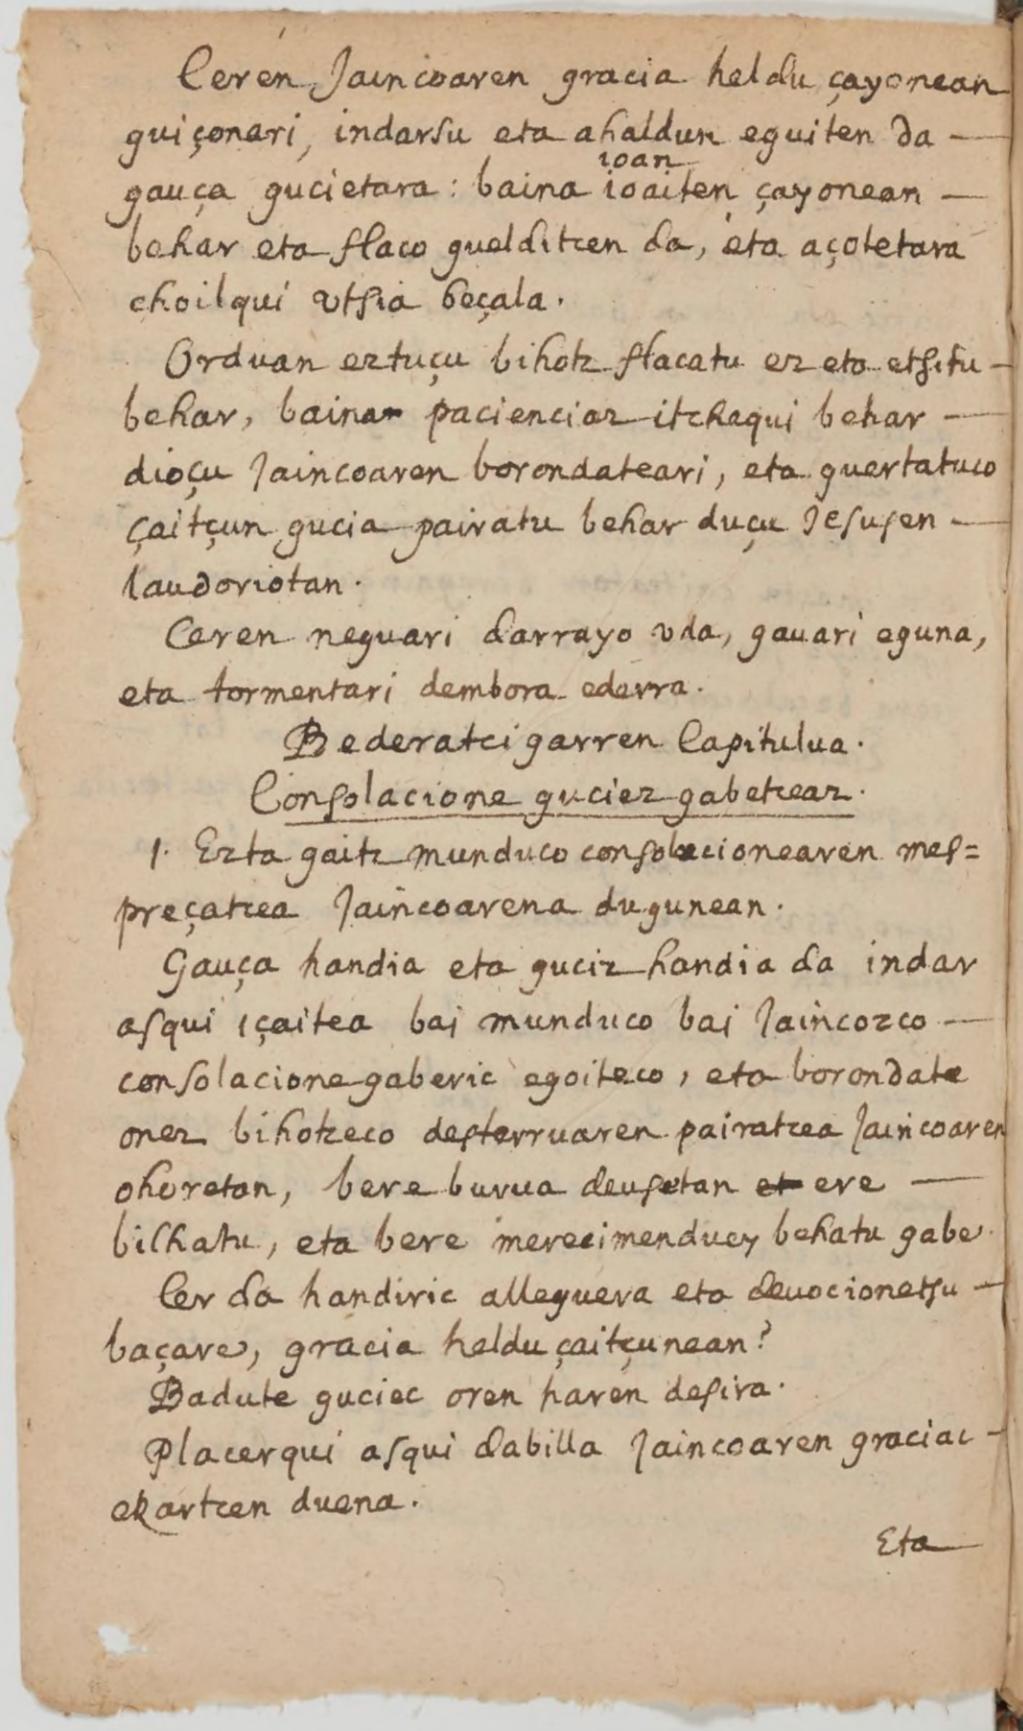 Ceren Jaincoaren gracia heldu çayonean
guiçonari, indarsu eta ahaldun eguiten da —
gauça gucietara: baina ioaiten çayonean —
ioan
behar eta flaco gueldítcen da, eta açotetara
choilqui vtsia beçala.
Orduan eztuçu bihotz flacatu ez eta etsitu —
behar, bainan pacienciaz itchequi behar —
dioçu Jaincoaren borondateari, eta guertatuco
çaitçun gucia pairatu behar duçu Jesusen —
laudoriotan.
Ceren neguari darrayo vda, gauari eguna,
eta tormentari dembora ederra.
Bederatci garren Capitulua.
Consolacione guciez gabetceaz.
1. Ezta gaitz munduco consolacionearen mes=
preçatcea Jaincoarena dugunean.
Gauça handia eta guciz handia da indar
asqui içaitea bai munduco bai Jaincozco —
consolacione gaberic egoiteco, eta borondate
onez bihotzeco desterruaren pairatcea Jaincoaren
ohoretan, bere burua deusetan et ere —
bilhatu, eta bere merecimenduey behatu gabe.
Cer da handiric alleguera eta deuocionetsu —
baçare, gracia heldu çaitçunean?
Badute guciec oren haren desira.
Placerqui asqui dabilla Jaincoaren graciac —
ekartcen duena.
Eta